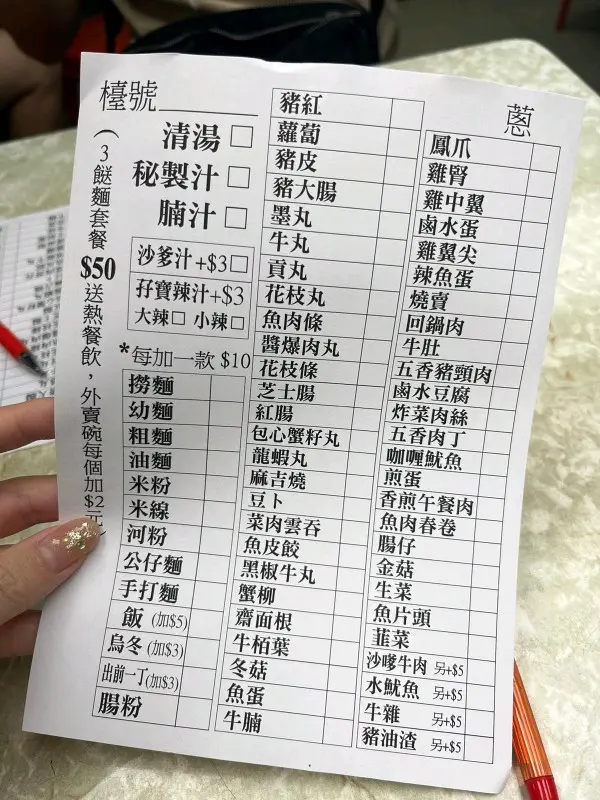 檯號
清湯 □
秘製汁 □
腩汁 □
沙爹汁+$3□
孖寶辣汁+$3
大辣□ 小辣□
(3餸麵套餐$50送熱餐飲，外賣碗每個加$2元)
*每加一款 $10
撈麵
幼麵
粗麵
油麵
米粉
米線
河粉
公仔麵
手打麵
飯(加$5)
烏冬(加$3)
出前一丁(加$3)
腸粉
豬紅
蘿蔔
豬皮
豬大腸
墨丸
牛丸
貢丸
花枝丸
魚肉條
醬爆肉丸
花枝條
芝士腸
紅腸
包心蟹籽丸
龍蝦丸
麻吉燒
豆卜
菜肉雲吞
魚皮餃
黑椒牛丸
蟹柳
齋面根
牛栢葉
冬菇
魚蛋
牛腩
蔥
鳳爪
雞腎
雞中翼
鹵水蛋
雞翼尖
辣魚蛋
燒賣
回鍋肉
牛肚
五香豬頸肉
鹵水豆腐
炸菜肉絲
五香肉丁
咖喱魷魚
煎蛋
香煎午餐肉
魚肉春卷
腸仔
金菇
生菜
魚片頭
韮菜
沙嗲牛肉 另+$5
水魷魚 另+$5
牛雜 另+$5
豬油渣 另+$5